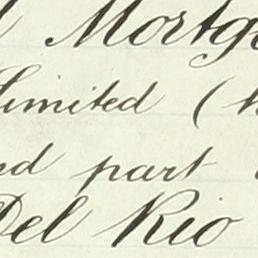 Mortg
Limited (
nd part
Del Rio